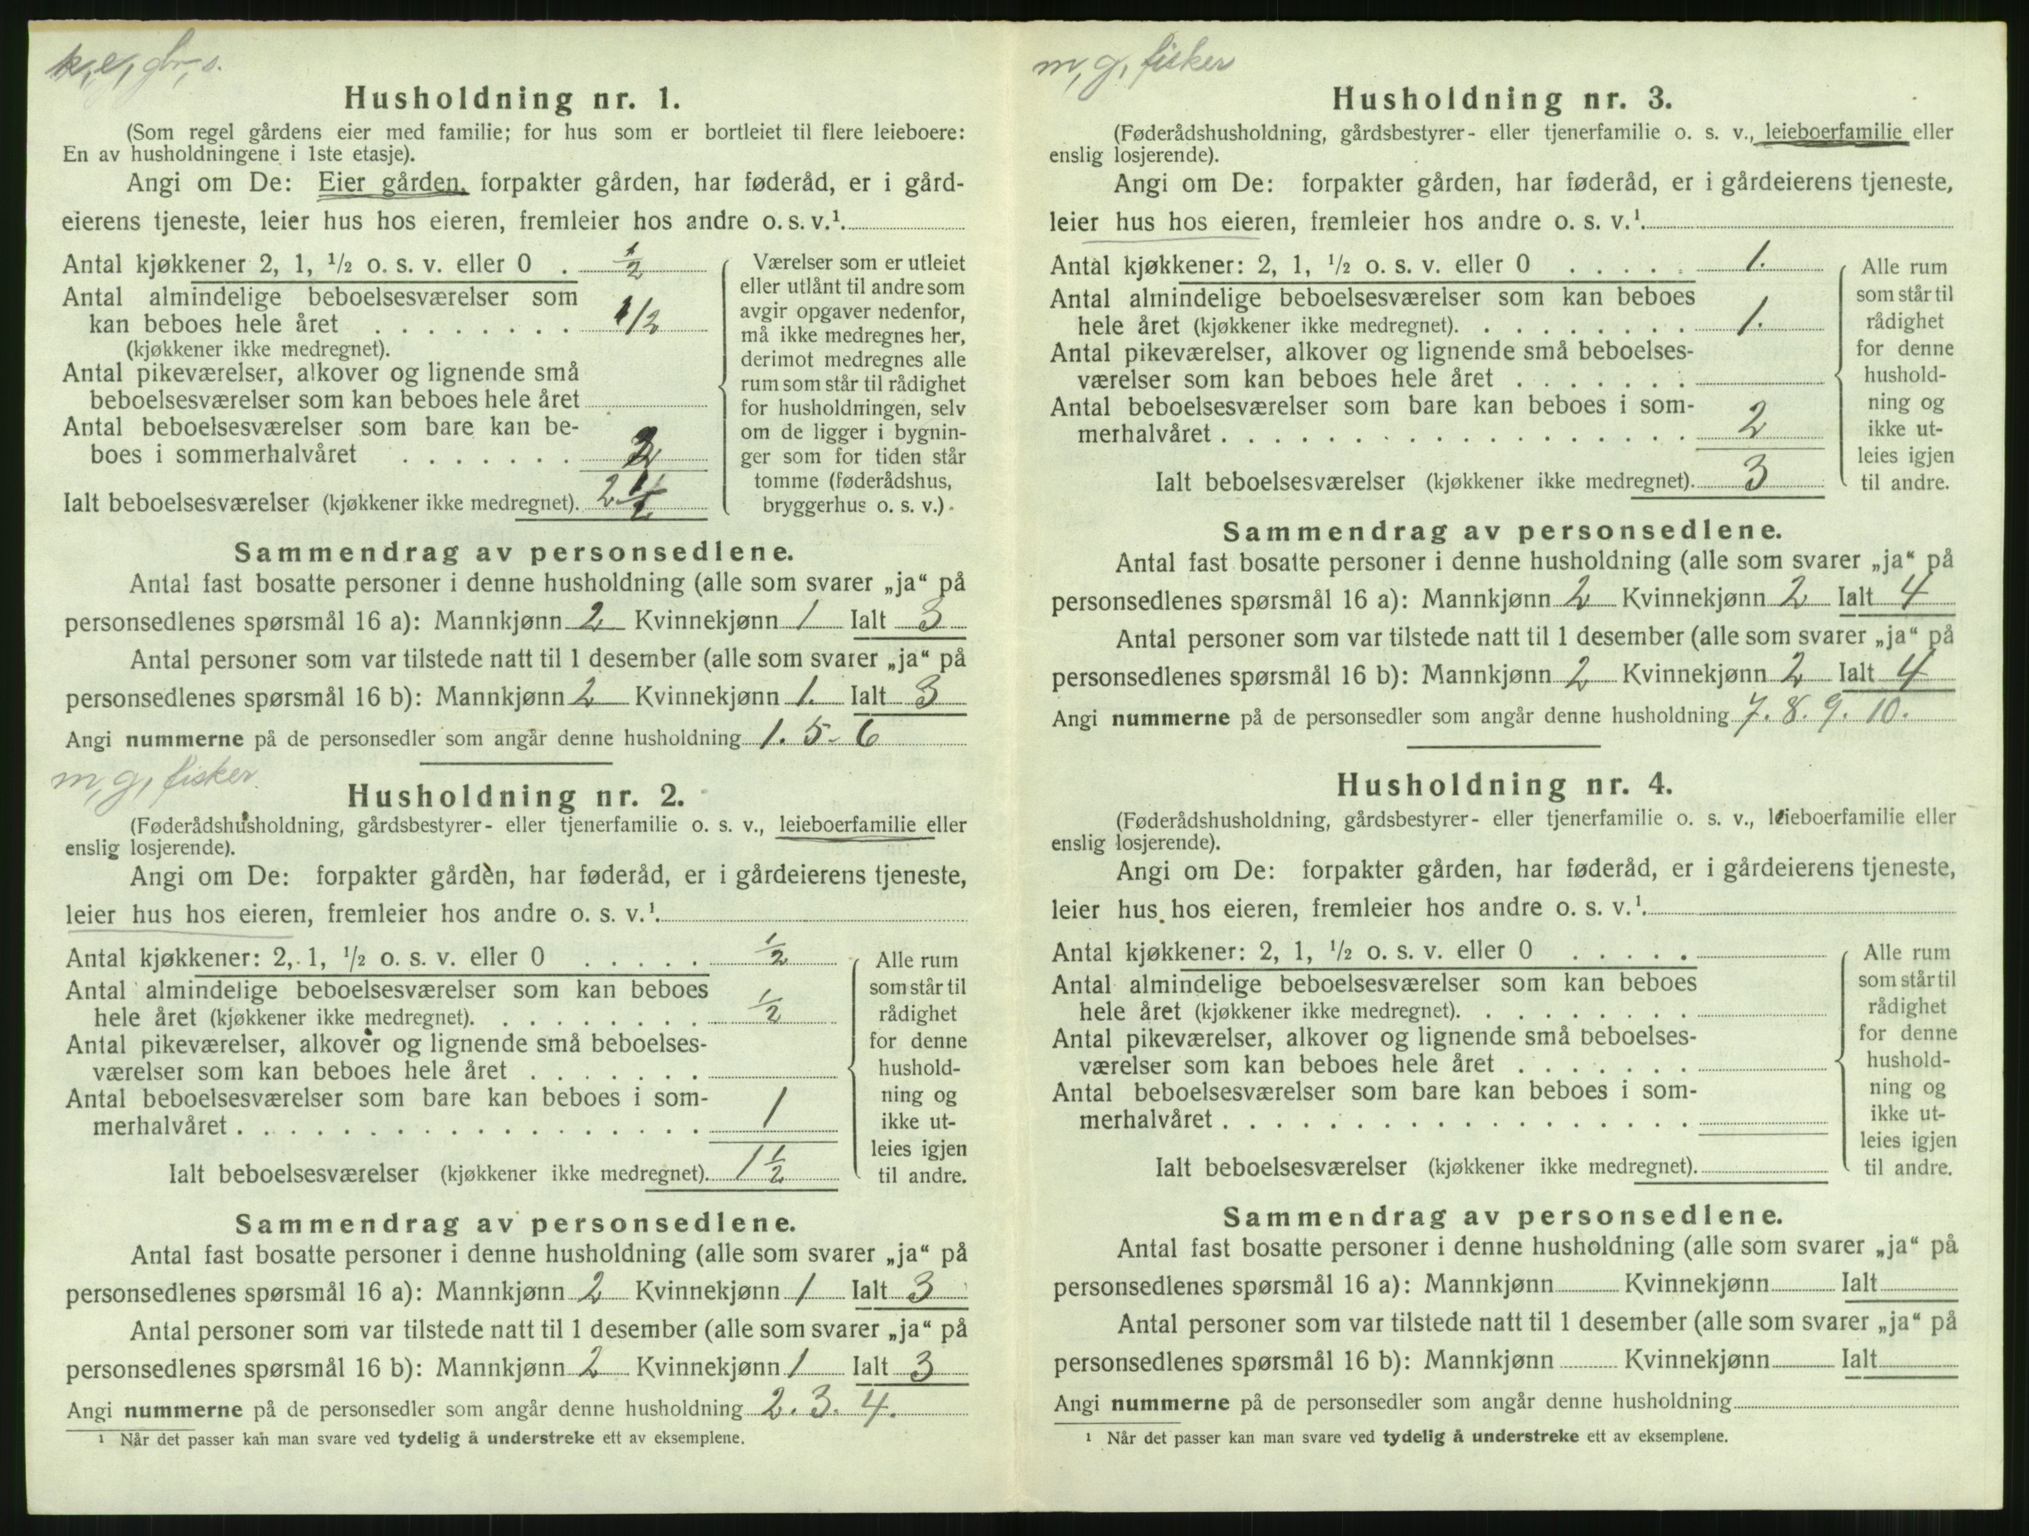 k, e, gbr, s.
Husholdning nr. 1.
(Som regel gårdens eier med familie; for hus som er bortleiet til flere leieboere:
En av husholdningene i 1ste etasje).
Angi om De: Eier gården, forpakter gården, har føderåd, er i gård-
eierens tjeneste, leier hus hos eieren, fremleier hos andre o. s. v.¹
Antal kjøkkener 2, 1, ½ o. s. v. eller 0 . ½
Antal almindelige beboelsesværelser som
kan beboes hele året . . . . . . . . . 1/2
(kjøkkener ikke medregnet).
Antal pikeværelser, alkover og lignende små
beboelsesværelser som kan beboes hele året
Antal beboelsesværelser som bare kan be-
boes i sommerhalvåret . . . . . . . 2
Ialt beboelsesværelser (kjøkkener ikke medregnet). 2 ½
Værelser som er utleiet
eller utlånt til andre som
avgir opgaver nedenfor,
må ikke medregnes her,
derimot medregnes alle
rum som står til rådighet
for husholdningen, selv
om de ligger i bygnin-
ger som for tiden står
tomme (føderådshus,
bryggerhus o. s. v.).
Sammendrag av personsedlene.
Antal fast bosatte personer i denne husholdning (alle som svarer „ja“ på
personsedlenes spørsmål 16 a): Mannkjønn 2 Kvinnekjønn 1 Ialt 3
Antal personer som var tilstede natt til 1 desember (alle som svarer „ja“ på
personsedlenes spørsmål 16 b): Mannkjønn 2 Kvinnekjønn 1. Ialt 3
Angi nummerne på de personsedler som angår denne husholdning 1. 5- 6
m, g, fisker.
Husholdning nr. 2.
(Føderådshusholdning, gårdsbestyrer- eller tjenerfamilie o. s. v., leieboerfamilie eller
enslig losjerende).
Angi om De: forpakter gården, har føderåd, er i gårdeierens tjeneste,
leier hus hos eieren, fremleier hos andre o. s. v.¹
Antal kjøkkener: 2, 1, ½ o. s. v. eller 0 . . . . . ½
Antal almindelige beboelsesværelser som kan beboes
hele året (kjøkkener ikke medregnet). . . . . . . . . ½
Antal pikeværelser, alkover og lignende små beboelses-
værelser som kan beboes hele året . . . . . . .
Antal beboelsesværelser som bare kan beboes i som-
merhalvåret . . . . . . . . . . . . . . . . . . 1
Ialt beboelsesværelser (kjøkkener ikke medregnet). 1 ½
Alle rum
som står til
rådighet
for denne
hushold-
ning og
ikke ut-
leies igjen
til andre.
Sammendrag av personsedlene.
Antal fast bosatte personer i denne husholdning (alle som svarer „ja“ på
personsedlenes spørsmål 16 a): Mannkjønn 2 Kvinnekjønn 1 Ialt 3
Antal personer som var tilstede natt til 1 desember (alle som svarer „ja“ på
personsedlenes spørsmål 16 b): Mannkjønn 2 Kvinnekjønn 1 Ialt 3
Angi nummerne på de personsedler som angår denne husholdning 2. 3. 4.
¹ Når det passer kan man svare ved tydelig å understreke ett av eksemplene.
m, g, fisker
Husholdning nr. 3.
(Føderådshusholdning, gårdsbestyrer- eller tjenerfamilie o. s. v., leieboerfamilie eller
enslig losjerende).
Angi om De: forpakter gården, har føderåd, er i gårdeierens tjeneste,
leier hus hos eieren, fremleier hos andre o. s. v.¹
Antal kjøkkener: 2, 1, ½ o. s. v. eller 0 . . . . . 1.
Antal almindelige beboelsesværelser som kan beboes
hele året (kjøkkener ikke medregnet). . . . . . . . . 1.
Antal pikeværelser, alkover og lignende små beboelses-
værelser som kan beboes hele året . . . . . . .
Antal beboelsesværelser som bare kan beboes i som-
merhalvåret . . . . . . . . . . . . . . . . . . 2
Ialt beboelsesværelser (kjøkkener ikke medregnet). 3
Alle rum
som står til
rådighet
for denne
hushold-
ning og
ikke ut-
leies igjen
til andre.
Sammendrag av personsedlene.
Antal fast bosatte personer i denne husholdning (alle som svarer „ja“ på
personsedlenes spørsmål 16 a): Mannkjønn 2 Kvinnekjønn 2 Ialt 4
Antal personer som var tilstede natt til 1 desember (alle som svarer „ja“ på
personsedlenes spørsmål 16 b): Mannkjønn 2 Kvinnekjønn 2 Ialt 4
Angi nummerne på de personsedler som angår denne husholdning 7. 8. 9. 10.
Husholdning nr. 4.
(Føderådshusholdning, gårdsbestyrer- eller tjenerfamilie o. s. v., leieboerfamilie eller
enslig losjerende).
Angi om De: forpakter gården, har føderåd, er i gårdeierens tjeneste,
leier hus hos eieren, fremleier hos andre o. s. v.¹
Antal kjøkkener: 2, 1, ½ o. s. v. eller 0 . . . . .
Antal almindelige beboelsesværelser som kan beboes
hele året (kjøkkener ikke medregnet). . . . . . . . .
Antal pikeværelser, alkover og lignende små beboelses-
værelser som kan beboes hele året . . . . . . .
Antal beboelsesværelser som bare kan beboes i som-
merhalvåret . . . . . . . . . . . . . . . . . .
Ialt beboelsesværelser (kjøkkener ikke medregnet).
Alle rum
som står til
rådighet
for denne
hushold-
ning og
ikke ut-
leies igjen
til andre.
Sammendrag av personsedlene.
Antal fast bosatte personer i denne husholdning (alle som svarer „ja“ på
personsedlenes spørsmål 16 a): Mannkjønn Kvinnekjønn Ialt
Antal personer som var tilstede natt til 1 desember (alle som svarer „ja“ på
personsedlenes spørsmål 16 b): Mannkjønn Kvinnekjønn Ialt
Angi nummerne på de personsedler som angår denne husholdning
¹ Når det passer kan man svare ved tydelig å understreke ett av eksemplene.